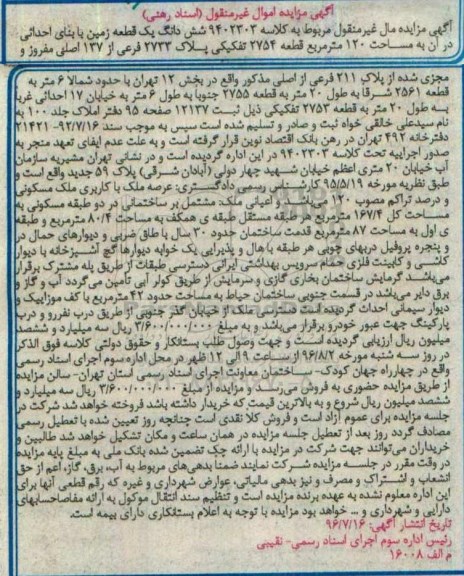 آگهی مزایده اموال غیرمنقول (اسناد رهنی)
آگهی مزایده مال غیرمنقول مربوط به کلاسه ۹۴۰۲۳۰۳ شش دانگ یک قطعه زمین با بنای احداثی
در آن به مساحت ۱۲۰ مترمربع قطعه ۲۷۵۴ تفکیکی پلاک ۲۷۳۳ فرعی از ۱۳۷ اصلی مفروز و
مجزی شده از پلاک ۲۱۱ فرعی از اصلی مذکور واقع در بخش ۱۲ تهران با حدود شمالا ۶ متر به
قطعه ۲۵۶۱ شرقا به طول ۲۰ متر به قطعه ۲۷۵۵ جنوبا به طول ۶ متر به خیابان ۱۷ احداثی غربا
به طول ۲۰ متر به قطعه ۲۷۵۳ تفکیکی ذیل ثبت ۱۲۱۳۷ صفحه ۹۵ دفتر املاک جلد ۱۰۰ به
نام سیدعلی خالقی خواه ثبت و صادر و تسلیم شده است سپس به موجب سند ۹۲/۷/۱۶-۲۱۴۲۱
دفترخانه ۴۹۲ تهران در رهن بانک اقتصاد نوین قرار گرفته است و به علت عدم ایفای تعهد منجر به
صدور اجراییه تحت کلاسه ۹۴۰۲۳۰۳ در این اداره گردیده است و در نشانی تهران مشیریه سازمان
آب خیابان ۲۰ متری اعظم خیابان شهید چهار دولی (آبادان شرقی) پلاک ۵۹ جدید واقع است و
طبق نظریه مورخه ۹۵/۵/۱۹ کارشناس رسمی دادگستری: عرصه ملک با کاربری ملک مسکونی
و درصد تراکم مصوب ۱۲۰ می‌باشد و اعیانی ملک: مشتمل بر ساختمانی در دو طبقه مسکونی به
مساحت کل ۱۶۷/۴ مترمربع هر طبقه مستقل طبقه ی همکف به مساحت ۸۰/۴ مترمربع و طبقه
ی اول به مساحت ۸۷ مترمربع قدمت ساختمان حدود ۳۰ سال با طاق ضربی و دیوارهای حمال در
و پنجره پروفیل دربهای چوبی هر طبقه با هال و پذیرایی یک خوابه دیوارها گچ آشپزخانه با دیوار
کاشی و کابینت فلزی حمام سرویس بهداشتی ایرانی دسترسی طبقات از طریق پله مشترک برقرار
می‌باشد گرمایش ساختمان بخاری گازی و سرمایش از طریق کولر آبی تأمین می‌گردد آب و گاز و
برق دایر می‌باشد در قسمت جنوبی ساختمان حیاط به مساحت حدود ۴۲ مترمربع با کف موزاییک و
دیوار سیمانی احداث گردیده است دسترسی ملک از خیابان گذر جنوبی از طریق درب نفررو و درب
پارکینگ جهت عبور خودرو برقرار می‌باشد و به مبلغ ۳/۶۰۰/۰۰۰/۰۰۰ ریال سه میلیارد و ششصد
میلیون ریال ارزیابی گردیده است و جهت وصول طلب بستانکار و حقوق دولتی کلاسه فوق الذکر
در روز سه شنبه مورخه ۹۶/۸/۲ از ساعت ۹ الی ۱۲ ظهر در محل اداره سوم اجرای اسناد رسمی
واقع در چهارراه جهان کودک- ساختمان معاونت اجرای اسناد رسمی استان تهران- سالن مزایده
از طریق مزایده حضوری به فروش می‌رسد و مزایده از مبلغ ۳/۶۰۰/۰۰۰/۰۰۰ ریال سه میلیارد و
ششصد میلیون ریال شروع و به بالاترین قیمت که خریدار داشته باشد فروخته خواهد شد شرکت در
جلسه مزایده برای عموم آزاد است و فروش کلا نقدی است چنانچه روز تعیین شده با تعطیل رسمی
مصادف گردد روز بعد از تعطیل جلسه مزایده در همان ساعت و مکان تشکیل خواهد شد طالبین و
خریداران می‌توانند جهت شرکت در مزایده با ارائه چک تضمین شده بانک ملی به مبلغ پایه مزایده
در وقت مقرر در جلسه مزایده شرکت نمایند ضمنا بدهی‌های مربوط به آب، برق، گاز، اعم از حق
انشعاب و اشتراک و مصرف و نیز بدهی مالیاتی، عوارض شهرداری و غیره که رقم قطعی آنها برای
این اداره معلوم نشده به عهده برنده مزایده است و تنظیم سند انتقال موکول به ارائه مفاصاحسابهای
دارایی و شهرداری و ... خواهد بود مزایده با توجه به اعلام بستانکاری دارای بیمه است.
تاریخ انتشار آگهی: ۹۶/۷/۱۶
رئیس اداره سوم اجرای اسناد رسمی- نقیبی
م الف ۱۶۰۰۸